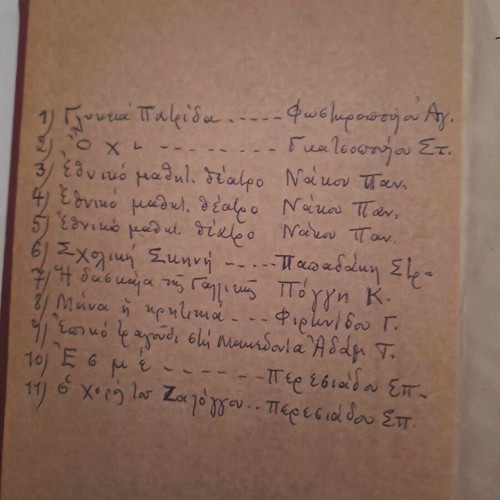 1) Γλυκειά Πατρίδα ----- Φωτακοπούλου Αγ.
2) Ὄχι -------- Γκατσοπούλου Στ.
3) Ἐθνικό μαθητ. θέατρο Νάκου Παν.
4) Ἐθνικό μαθητ. θέατρο Νάκου Παν.
5) Ἐθνικό μαθητ. θέατρο Νάκου Παν.
6) Σχολική Σκηνή ----- Παπαδάκη Στρ.
7) Ἡ δασκάλα τῆς Γαλλικῆς Πόγγη Κ.
8) Μάνα ἡ κρητικιά --- Φιρηνίδου Γ.
9) τραγούδι στή Μακεδονία Ἀδάμ Τ.
10) Ἐσμέ ------- Περεσιάδου Σπ.
11) ὁ χορός του Ζαλόγγου.. Περεσιάδου Σπ.